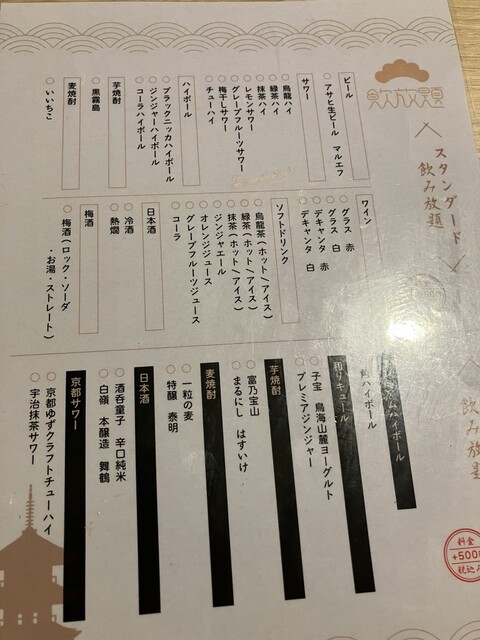 飲放題
スタンダード
飲み放題
ビール
○ アサヒ生ビール マルエフ
サワー
○ 烏龍ハイ
○ 緑茶ハイ
○ 抹茶ハイ
○ レモンサワー
○ グレープフルーツサワー
○ 梅干しサワー
○ チューハイ
ハイボール
○ ブラックニッカハイボール
○ ジンジャーハイボール
○ コーラハイボール
芋焼酎
○ 黒霧島
麦焼酎
○ いいちこ
ワイン
○ グラス 赤
○ グラス 白
○ デキャンタ 赤
○ デキャンタ 白
ソフトドリンク
○ 烏龍茶(ホット/アイス)
○ 緑茶(ホット/アイス)
○ 抹茶(ホット/アイス)
○ ジンジャエール
○ オレンジジュース
○ グレープフルーツジュース
○ コーラ
日本酒
○ 冷酒
○ 熱燗
梅酒
○ 梅酒(ロック・ソーダ
・お湯・ストレート)
飲み放題
料金
+500
税込
ハイボール
ハイボール
和リキュール
○ 子宝 鳥海山麓ヨーグルト
○ プレミアジンジャー
芋焼酎
○ 富乃宝山
○ まるにし はすいけ
麦焼酎
○ 一粒の麦
○ 特醸 泰明
日本酒
○ 酒呑童子 辛口純米
○ 白嶺 本醸造 舞鶴
京都サワー
○ 京都ゆずクラフトチューハイ
○ 宇治抹茶サワー